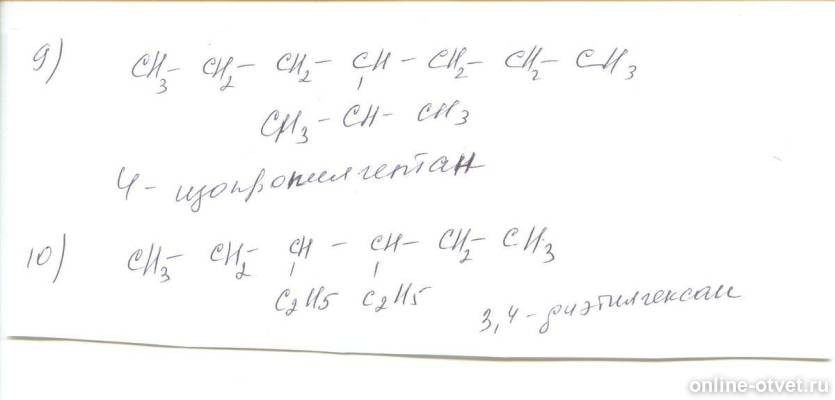 9) CH₃ – CH₂ – CH₂ – CH – CH₂ – CH₂ – CH₃
CH₃ – CH – CH₃
4 - изопропилгептан
10) CH₃ – CH₂ – CH – CH – CH₂ – CH₃
C₂H5 C₂H5
3,4 - диэтилгексан
online-otvet.ru